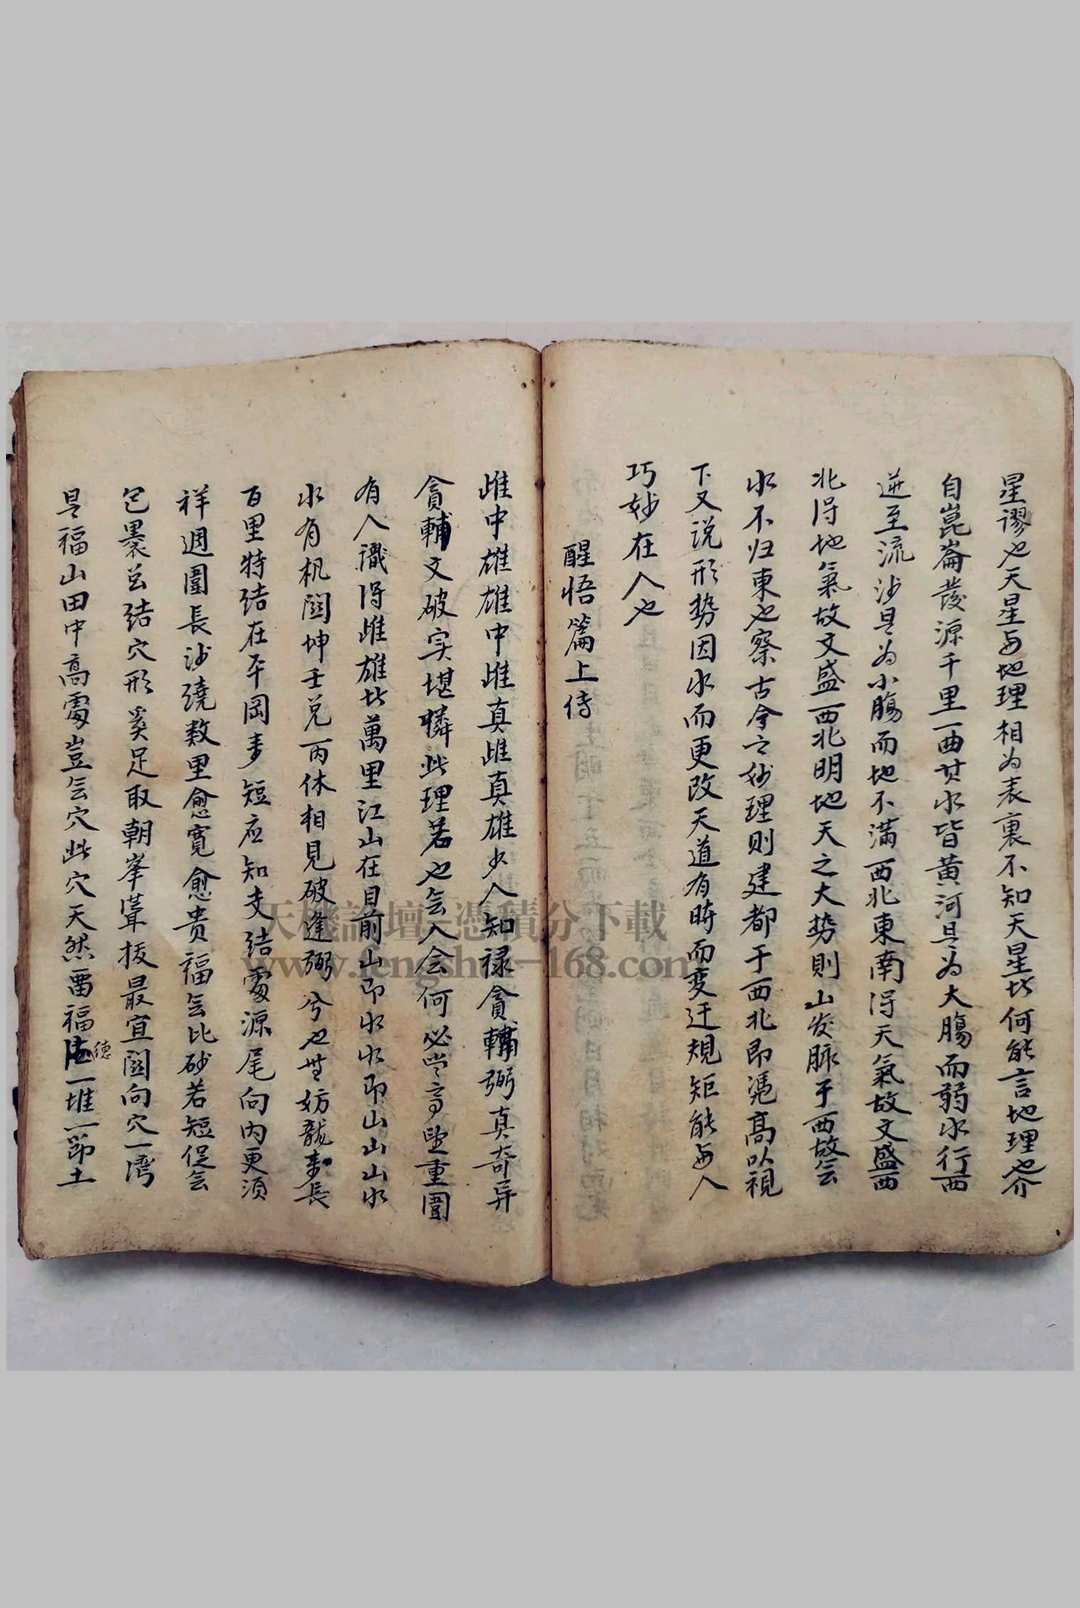 星謬也天星与地理相为表裏不知天星此何能言地理也介
自崑崙發源千里一曲其水皆黄河是为大腸而弱水行西
逆至流沙是为小腸而地不滿西北東南得天氣故文盛西
北得地氣故文盛西北明地天之大势則山发脉于西故会
水不归東也察古今之妙理則建都于西北即凴高以視
下又说形势因水而更改天道有時而変迁規矩能与人
巧妙在人也
醒悟篇上侍
雌中雄雄中雌真雌真雄少人知禄貪輔弼真奇异
貪輔文破实堪憐此理若也会人会何必登高望重圍
有人識得雌雄此萬里江山在目前山即水水即山山山水
水有机関坤壬兑丙休相見破逢弼兮也無妨龍来長
百里特结在平岡来短应知支结處源尾向内更須
祥週圍長沙繞数里愈寬愈贵福会比砂若短促会
包裹总结穴形奚足取朝峯聳拔最宜関向穴一湾
是福山田中高處豈会穴此穴天然畱福德一堆一節土
天機論壇-憑積分下載
www.fengshui-168.com